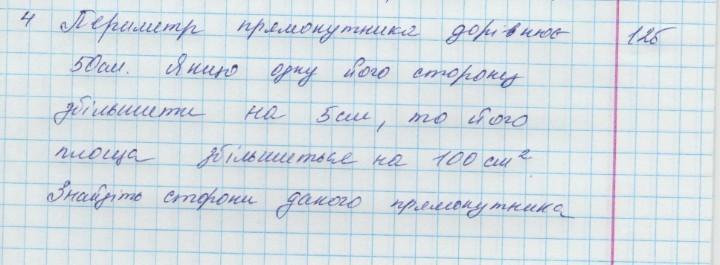 4 Периметр прямокутника дорівнює 12б
50см. Якщо одну його сторону
збільшити на 5см, то його
площа збільшиться на 100 см²
Знайдіть сторони даного прямокутника